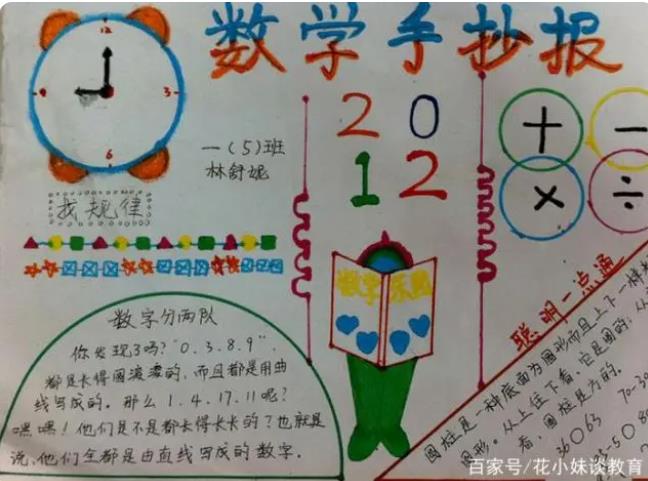 数学手抄报
12
9
3
6
一(5)班
林舒妮
20
12
+
-
×
÷
找规律
数学乐园
数字分两队
你发现了吗?"0.3.8.9"
都是长得圆滚滚的，而且都是用曲
线写成的。那么1.4.17.11呢?
嘿嘿!他们是不是都长得长长的?也就是
说，他们全都是由直线写成的数字。
聪明一点通
圆柱是一种底面为圆形而且上下一样
圆形。从上往下看，它是圆的；从
看，圆柱是方的。
36○63
70-30
35-5○80
百家号/花小妹谈教育